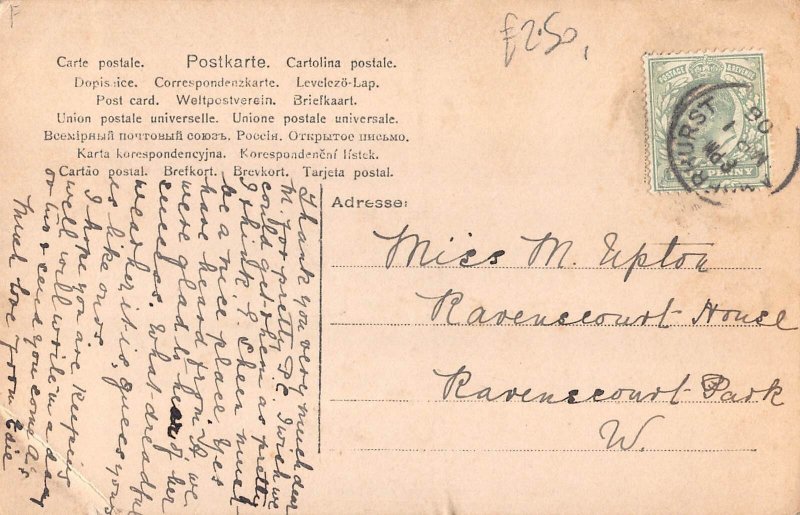 F
£2.50,
Carte postale. Postkarte. Cartolina postale.
Correspondenzkarte. Levelező-Lap.
Post card. Weltpostverein. Briefkaart.
Union postale universelle. Unione postale universale.
Всемірный почтовый союзъ. Россія. Открытое письмо.
Karta korespondencyjna. Korespondenční lístek.
Cartão postal. Brefkort. Brevkort. Tarjeta postal.
POSTAGE & REVENUE
Adresse:
Miss M. Upton
Ravenscourt House
Ravenscourt Park
W.
Thank you very much dear
M. for pretty P.C. I wish we
could get them as pretty
I think S. must
be a nice place. Yes
have heard from A we
were glad to hear of her
success. What dreadful
weather it is, guess yours
is like ours.
I hope you are keeping
well will write in a day
or two & send you some A's
Much love from Edie